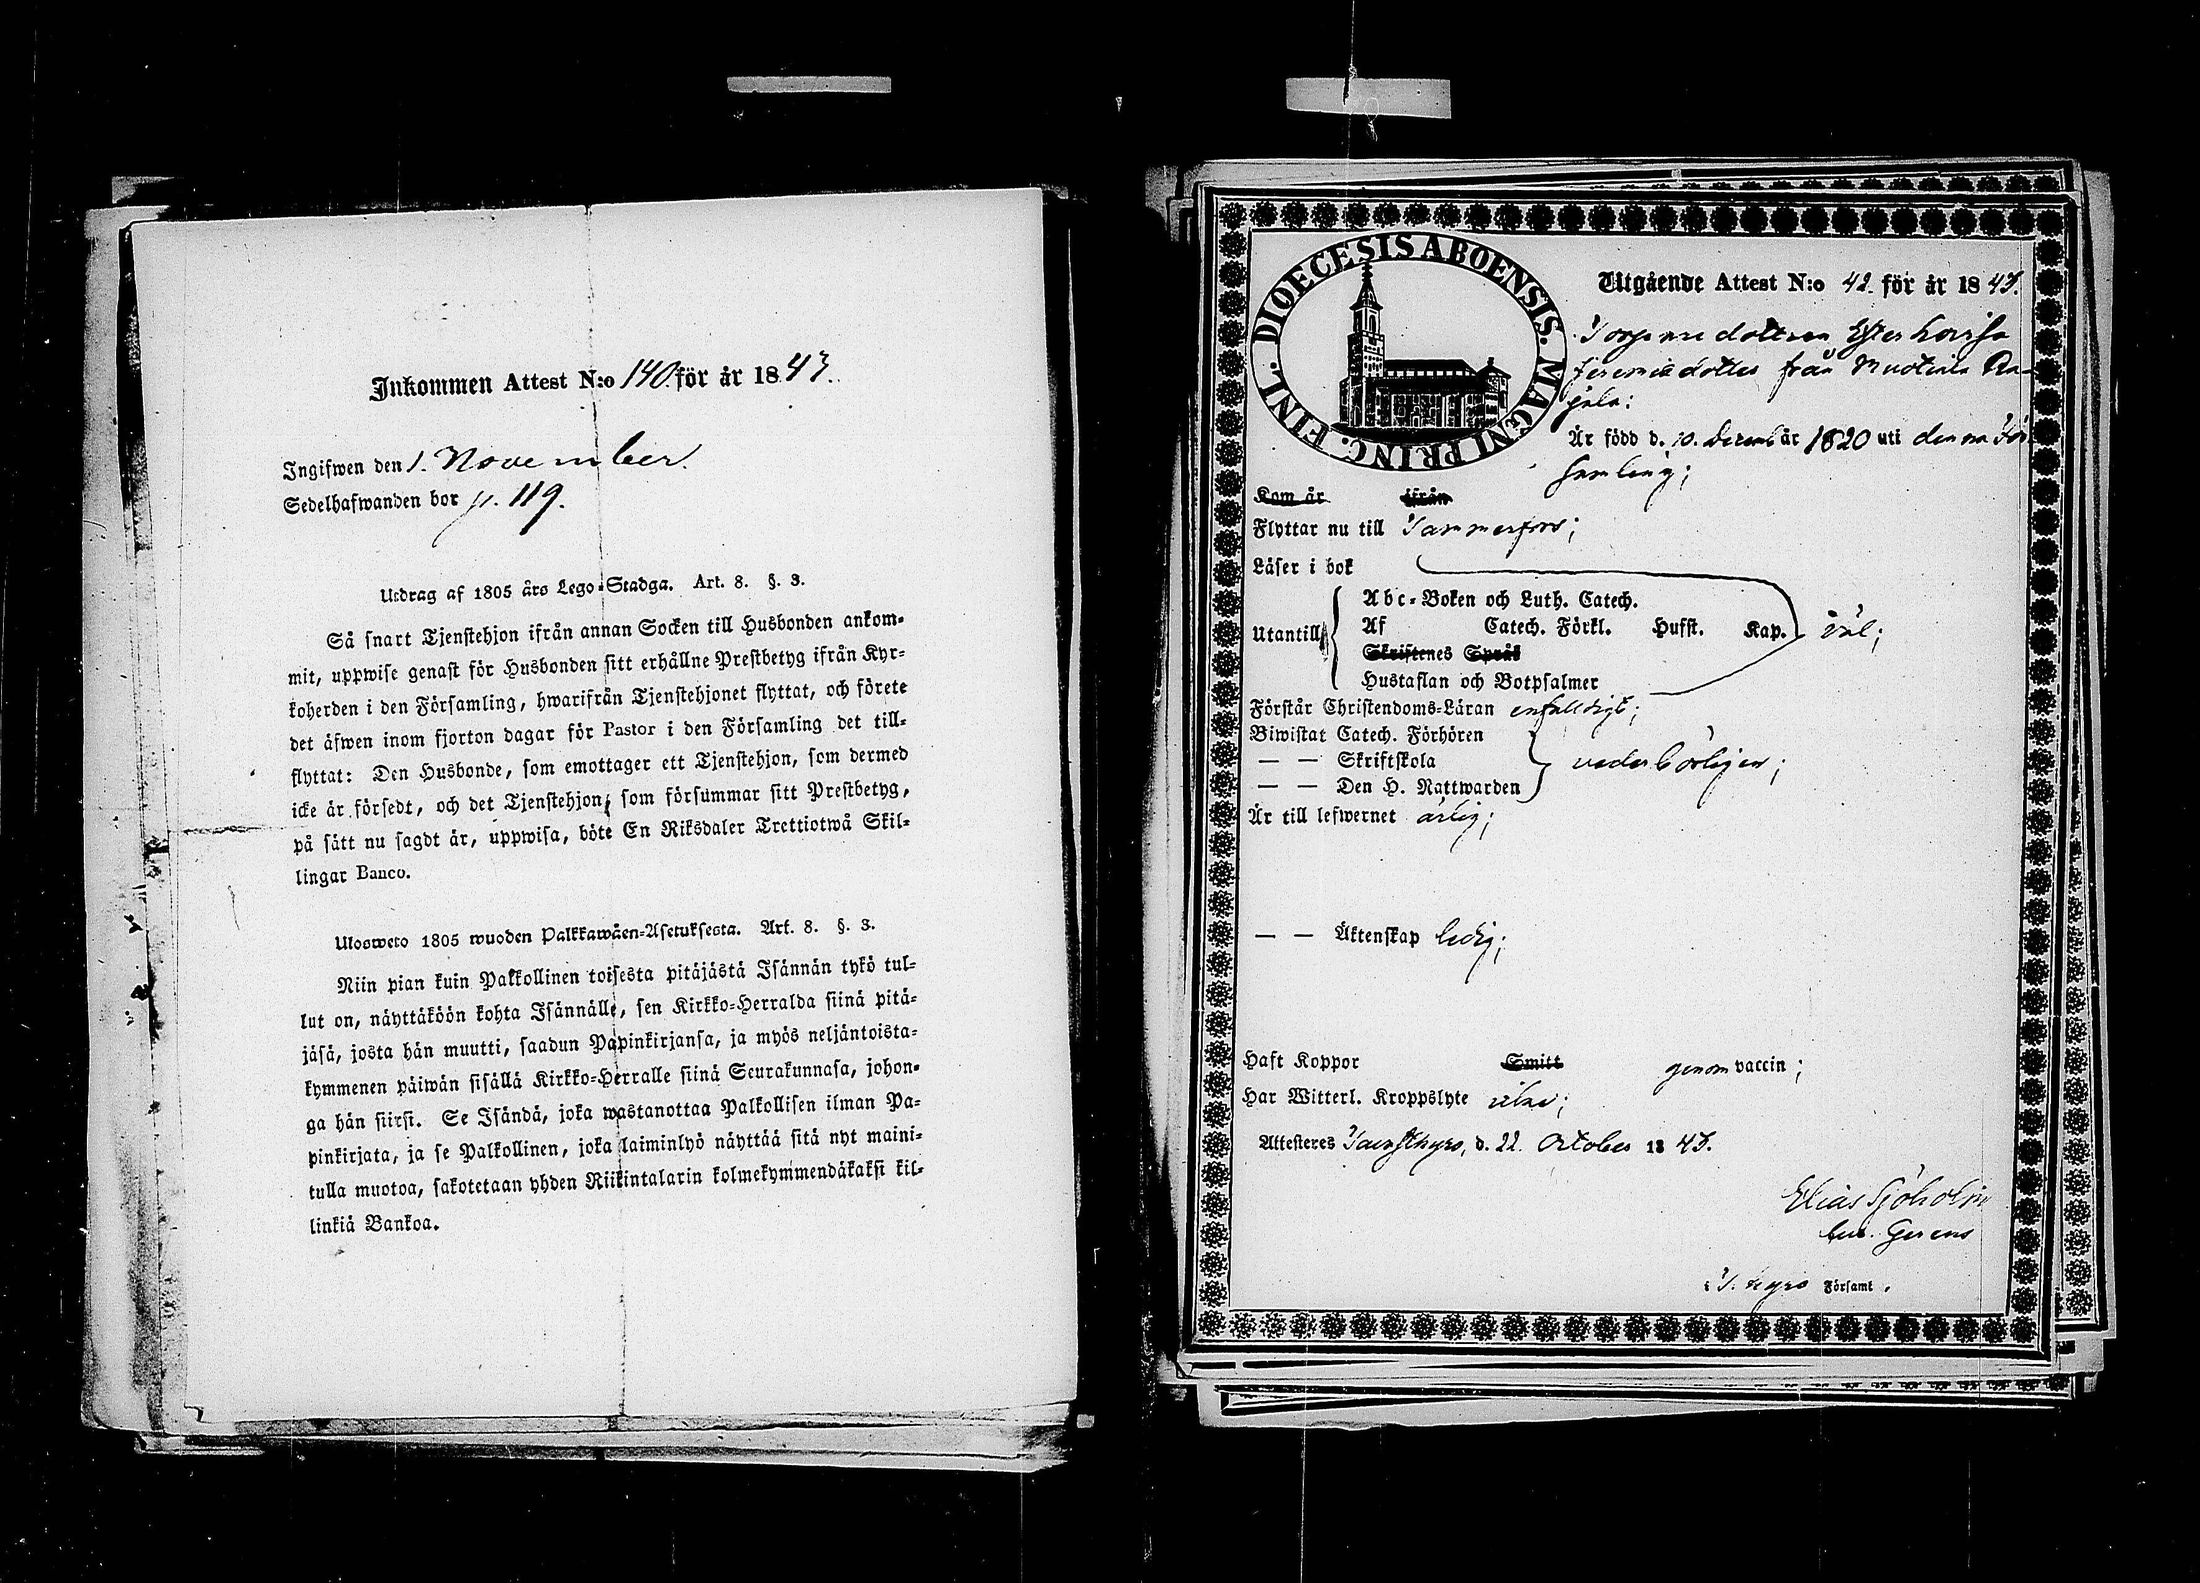 Inkommen Attest N:o 140 för år 1843.
Ingifwen den 1. November.
Sedelhafwanden bor p. 119.
Utdrag af 1805 års Lego-Stadga. Art. 8. §. 3.
Så snart Tjenstehjon ifrån annan Socken till Husbonden ankom-
mit, uppwise genast för Husbonden sitt erhållne Prestbetyg ifrån Kyr-
koherden i den Församling, hwarifrån Tjenstehjonet flyttat, och förete
det äfwen inom fjorton dagar för Pastor i den Församling det till-
flyttat: Den Husbonde, som emottager ett Tjenstehjon, som dermed
icke är försedt, och det Tjenstehjon, som försummar sitt Prestbetyg,
på sätt nu sagdt är, uppwisa, böte En Riksdaler Trettiotwå Skil-
lingar Banco.
Ulosweto 1805 wuoden Palkkawäen-Asetuksesta. Art. 8. §. 3.
Niin pian kuin Palkollinen toisesta pitäjästä Isännän tykö tul-
lut on, näyttäköön kohta Isännälle, sen Kirkko-Herralda siinä pitä-
jäsä, josta hän muutti, saadun Papinkirjansa, ja myös neljäntoista-
kymmenen päiwän sisällä Kirkko-Herralle siinä Seurakunnasa, johon-
ga hän siirsi. Se Isändä, joka wastanottaa Palkollisen ilman Pa-
pinkirjata, ja se Palkollinen, joka laiminlyö näyttää sitä nyt maini-
tulla muotoa, sakotetaan yhden Riikintalarin kolmekymmendäkaksi kil-
linkiä Bankoa.
DIOECESIS ABOENSIS. MAGNI PRINC. FINL.
Utgående Attest N:o 42. för år 1843.
Torparedottren Ester Lovisa
Jeremiedotter från Muotiala Ra-
jala:
Är född d. 10. Decemb år 1820 uti denna För
samling;
Kom år ifrån
Flyttar nu till Tammerfors;
Läser i bok
Abc-Boken och Luth. Catech.
Utantill Af Catech. Förkl. Husst. Kap. väl;
Skriftenes Språk
Hustaflan och Botpsalmer
Förstår Christendoms-Läran enfalldigt;
Biwistat Catech. Förhören
— — Skriftskola vederbörligen;
— — Den H. Nattwarden
Är till lefwernet ärlig;
— — Äktenskap ledig;
Haft Koppor Smitt genom vaccin;
Har Witterl. Kroppslyte utan;
Attesteres Tavastkyro, d. 22. October 1843.
Elias Sjöholm
Gerens
i T. kyro Församl.